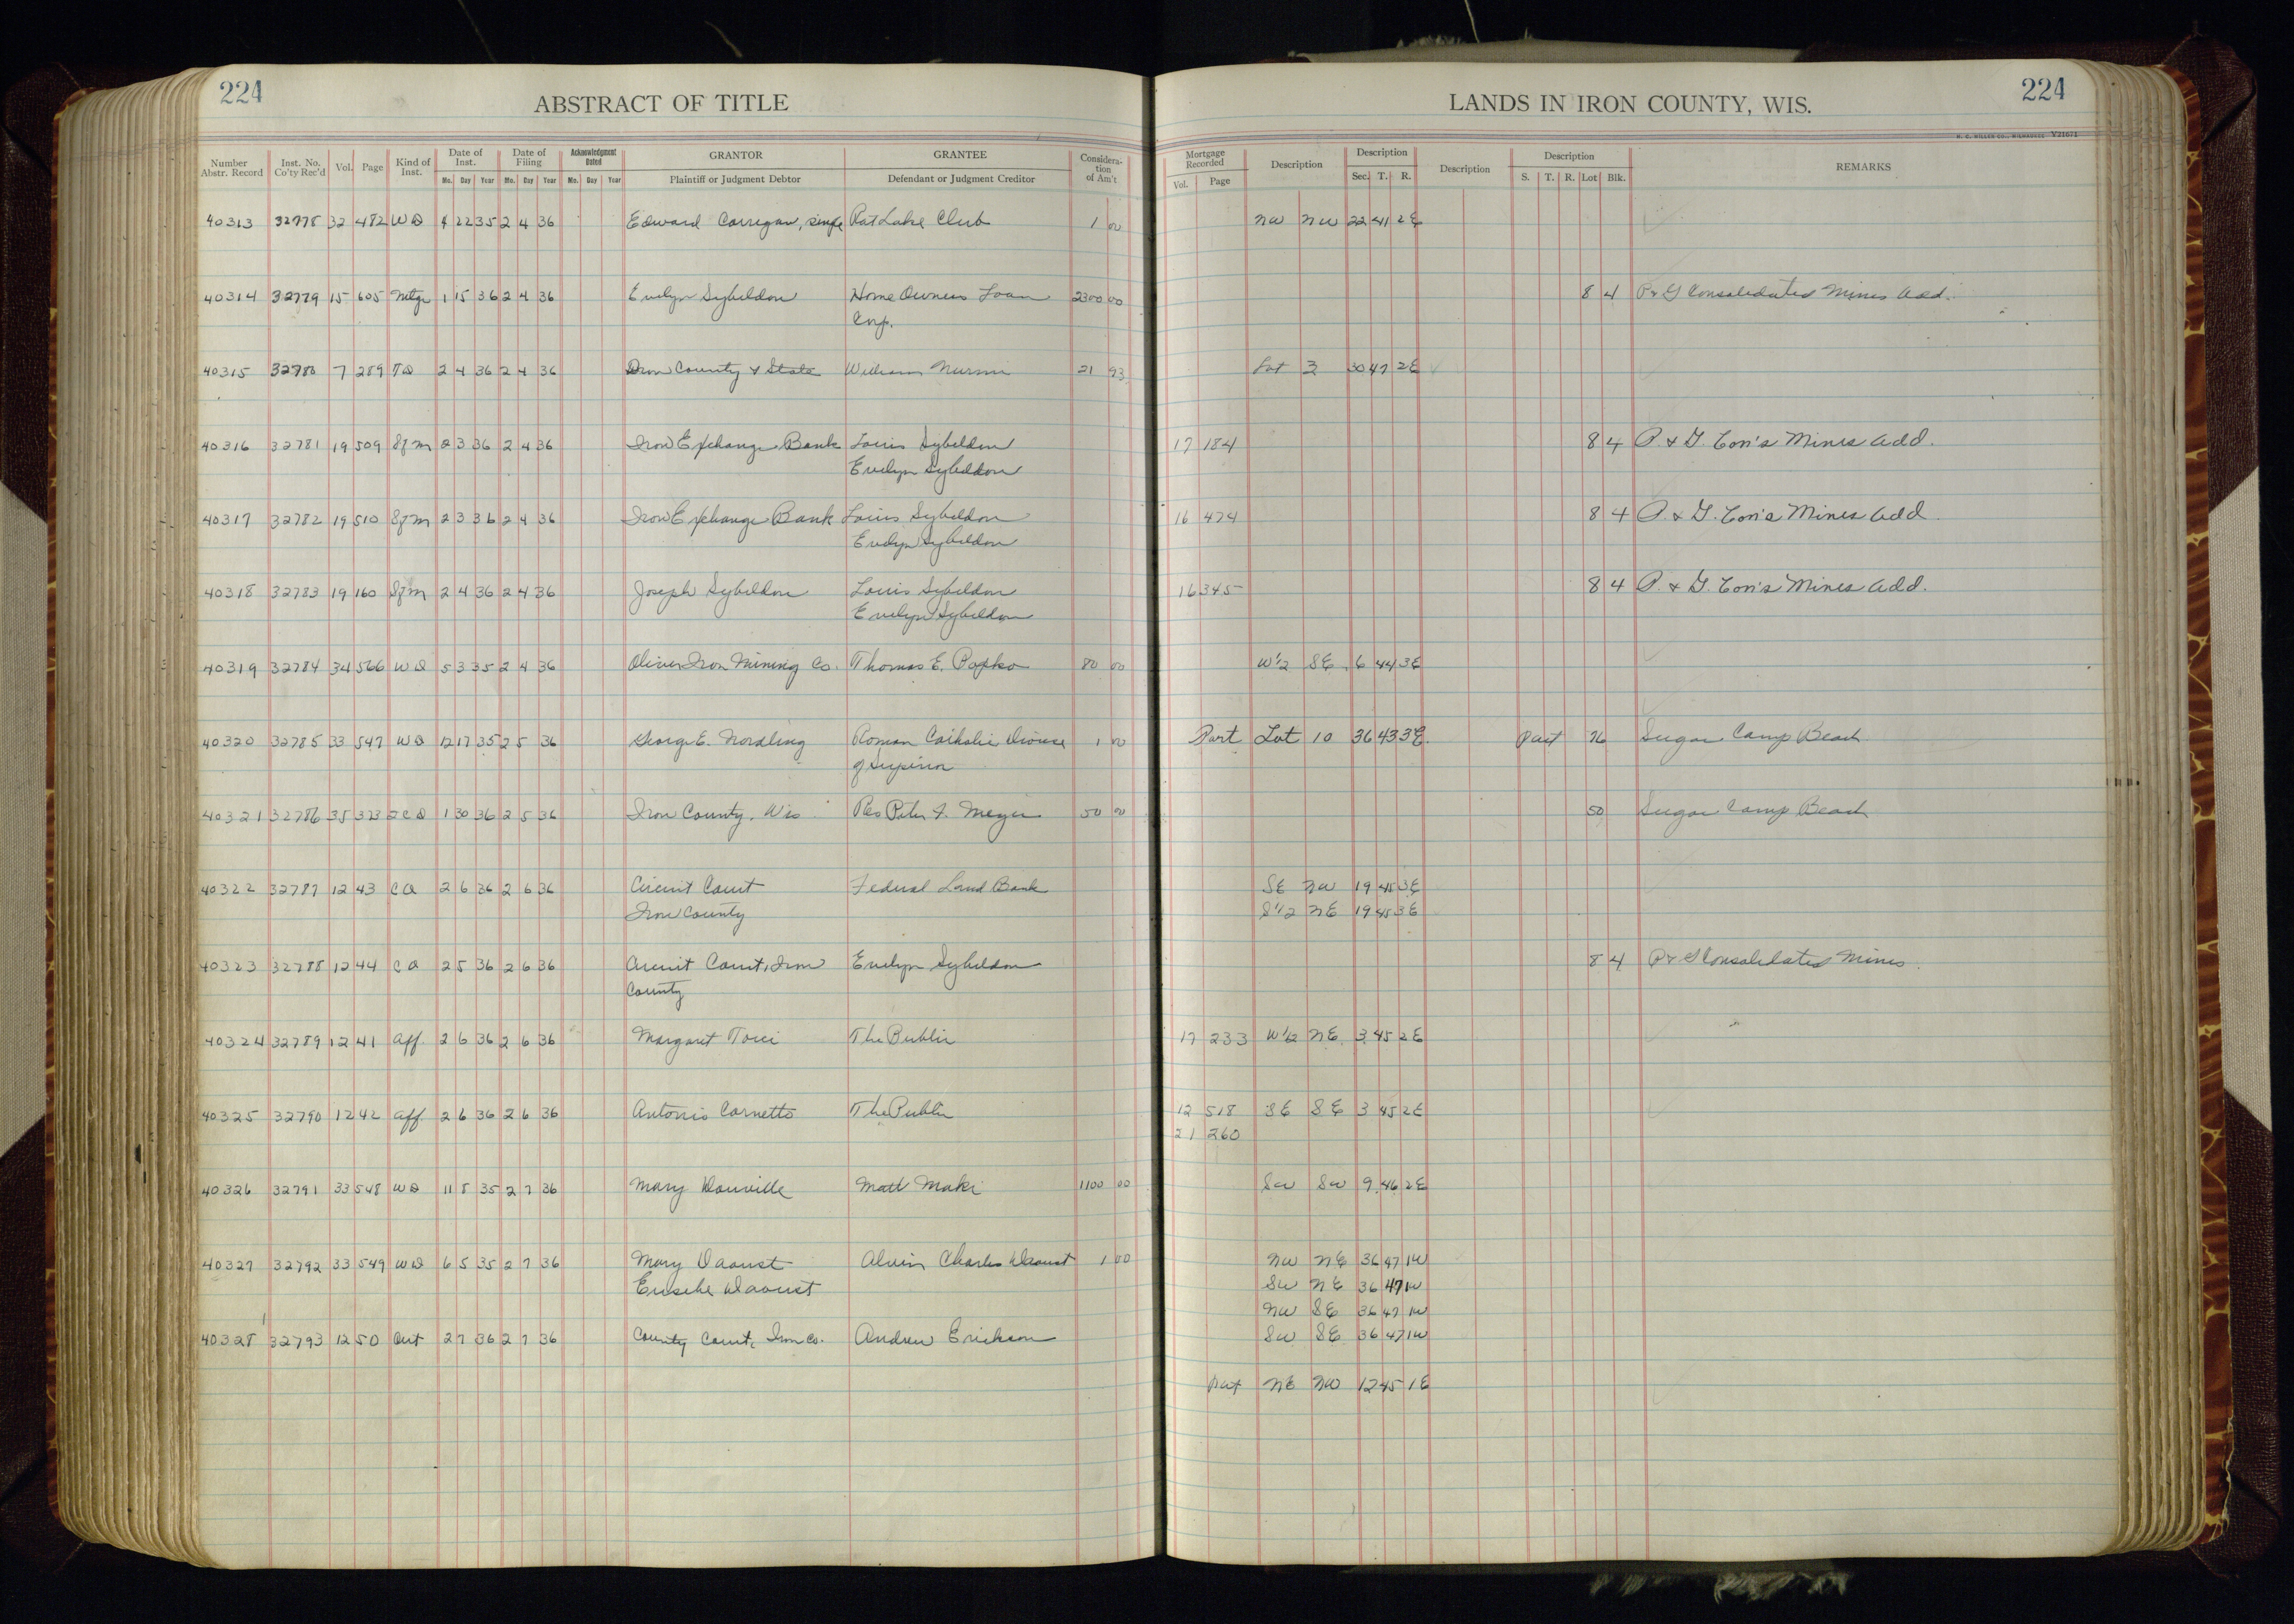 224
ABSTRACT OF TITLE
Number Abstr. Record Inst. No. Co'ty Rec'd Vol. Page Kind of Inst. Date of Inst. Mo. Day Year Date of Filing Mo. Day Year Acknowledgment Dated Mo. Day Year GRANTOR Plaintiff or Judgment Debtor GRANTEE Defendant or Judgment Creditor Considera-tion of Am't
LANDS IN IRON COUNTY, WIS.
224
V21671
Mortgage Recorded Vol. Page Description Description Sec. T. R. Description Description S. T. R. Lot Blk. REMARKS
40313 32778 32 482 WD 4 22 35 2 4 36 Edward Corrigan, single Rat Lake Club 1 00 NW NW 22 41 2E
40314 32779 15 605 Mtge 1 15 36 2 4 36 Evelyn Sybeldon Home Owners Loan 2300 00 8 4 P & G Consolidated Mines Add.
Corp.
40315 32780 7 289 TD 2 4 36 2 4 36 Iron County & State William Nurmi 21 93 Lot 3 30 47 2E
40316 32781 19 509 Sfm 2 3 36 2 4 36 Iron Exchange Bank Louis Sybeldon 17 184 8 4 P. & G. Con's Mines Add.
Evelyn Sybeldon
40317 32782 19 510 Sfm 2 3 36 2 4 36 Iron Exchange Bank Louis Sybeldon 16 474 8 4 P. & G. Con's Mines Add
Evelyn Sybeldon
40318 32783 19 160 Sfm 2 4 36 2 4 36 Joseph Sybeldon Louis Sybeldon 16 345 8 4 P. & G. Con's Mines Add.
Evelyn Sybeldon
40319 32784 34 566 WD 5 3 35 2 4 36 Oliver Iron Mining Co. Thomas E. Popko 80 00 W½ SE 6 44 3E
40320 32785 33 547 WD 12 17 35 2 5 36 George E. Nordling Roman Catholic Diocese 1 00 Part Lot 10 36 43 3E Part 76 Sugar Camp Beach
of Superior
40321 32786 35 323 1 30 36 2 5 36 Iron County, Wis Rev Peter F. Meyer 50 00 50 Sugar Camp Beach
40322 32787 12 43 CO 2 6 36 2 6 36 Circuit Court Federal Land Bank SE NW 19 45 3E
Iron County S½ NE 19 45 3E
40323 32788 12 44 CO 2 5 36 2 6 36 Circuit Court, Iron Evelyn Sybeldon 8 4 P & G Consolidated Mines
County
40324 32789 12 41 Aff. 2 6 36 2 6 36 Margaret Torci The Public 17 233 W½ NE 3 45 2E
40325 32790 12 42 Aff. 2 6 36 2 6 36 Antonio Cornetto The Public 12 518 SE SE 3 45 2E
21 260
40326 32791 33 548 WD 11 8 35 2 7 36 Mary Douville Matt Maki 1100 00 SW SW 9 46 2E
40327 32792 33 549 WD 6 5 35 2 7 36 Mary Daoust Alvin Charles Daoust 1 00 NW NE 36 47 1W
Eusebe Daoust SW NE 36 47 1W
NW SE 36 47 1W
40328 32793 12 50 2 7 36 2 7 36 County Court, Iron Co. Andrew Erickson SW SE 36 47 1W
Part NE NW 12 45 1E